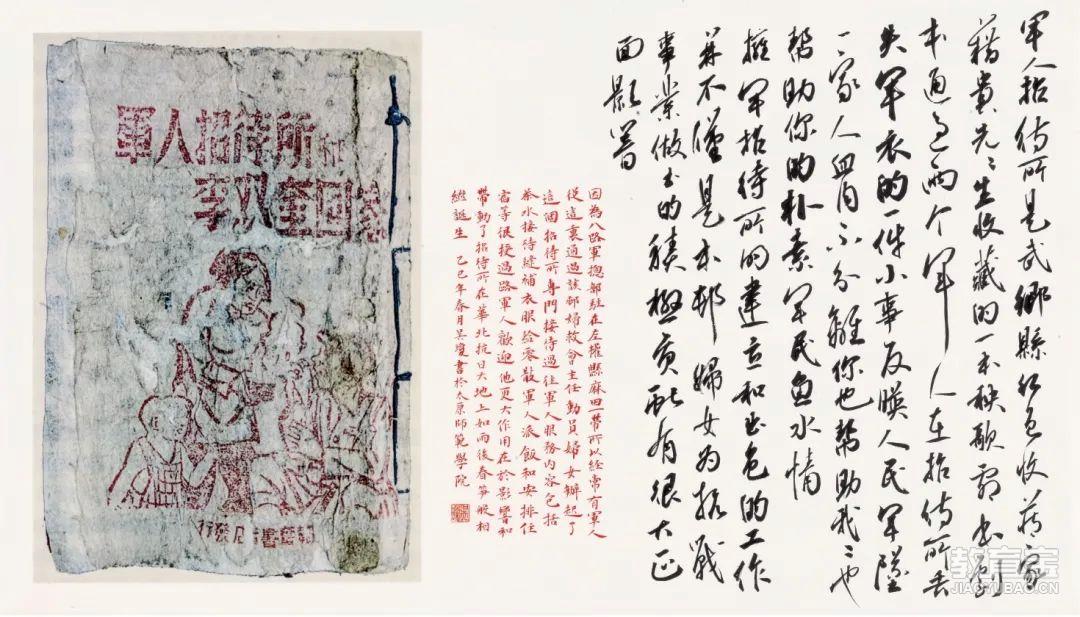 軍人招待所是武鄉縣紅色收藏家
籍貴先〻生收藏的一本秧歌劇
本通過兩个軍人在招待所丟
失軍衣的一件小事反暎人民軍隊
一家人血肉不分離你也幫助我〻也
幫助你的朴素軍民魚水情
擁軍招待所的建立和出色的工作
并不僅是本邨婦女为抗戰
事業做出的積極貢献有很大正
面影響
因為八路軍總部駐在左權縣麻田一帶所以經常有軍人
從這裏通過該邨婦救會主任動員婦女辦起了
這個招待所專門接待過往軍人服務内容包括
茶水接待縫補衣服給零散軍人派飯和安排住
宿等很授過路軍人歡迎他更大作用在於影響和
帶動了招待所在華北抗日大地上如雨後春笋般相
繼誕生 乙巳年春月吳瓊書於太原師範學院
軍人招待所和
李八奎回家
韜奮書店發行
教育宝
JIAOYUBAO.CN